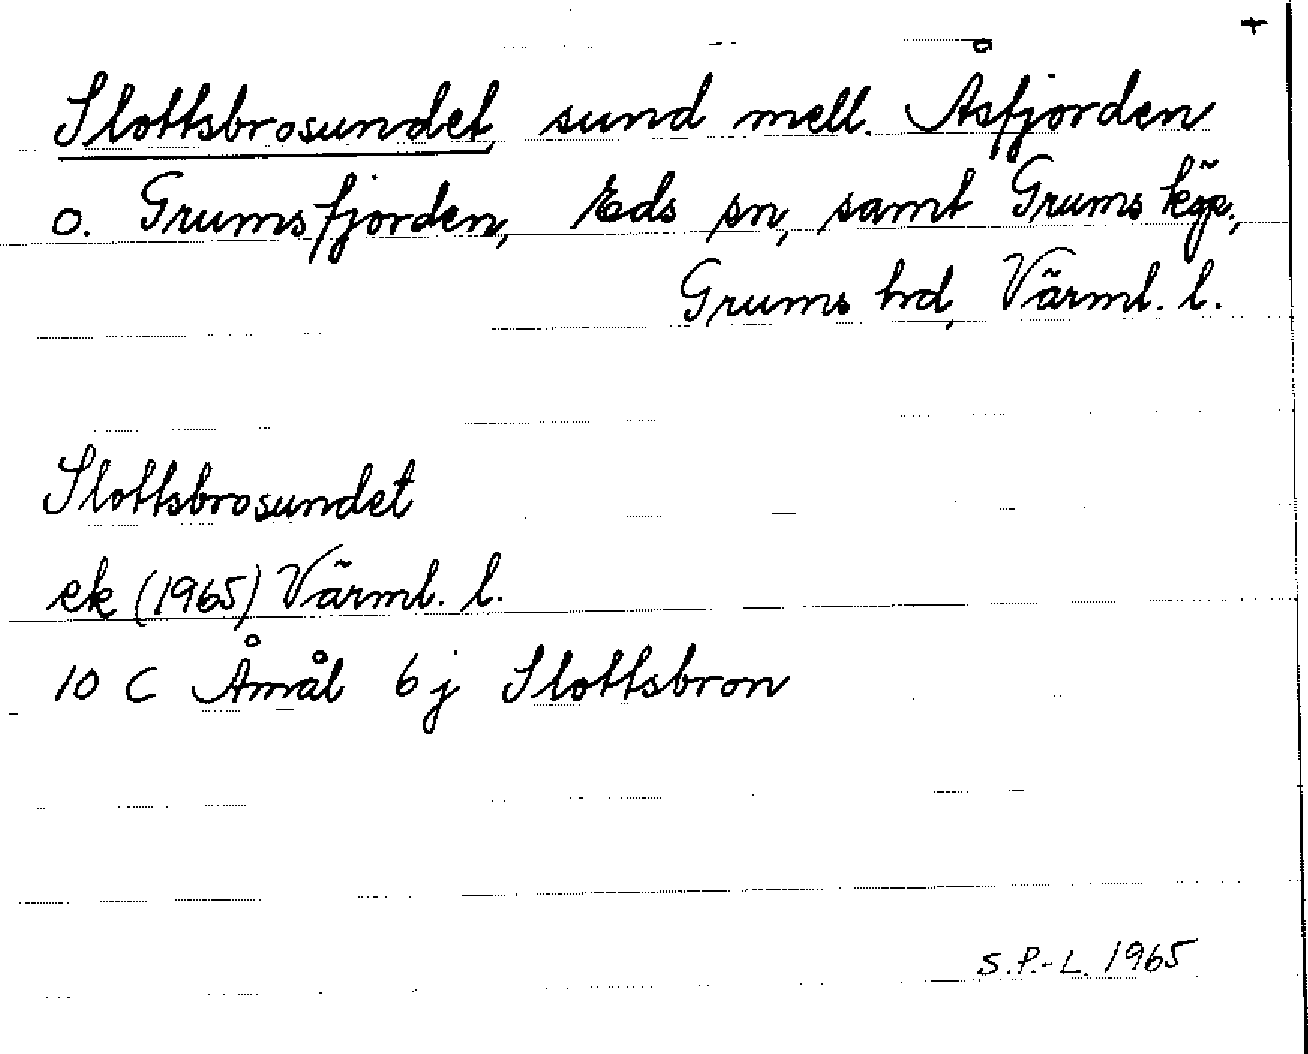 +
Slottsbrosundet, sund mell. Åsfjorden
o. Grumsfjorden, Eds sn, samt Grums köp.,
Grums hd, Värml. l.
Slottsbrosundet
ek (1965) Värml. l.
10 C Åmål 6 j Slottsbron
S.P.-L. 1965